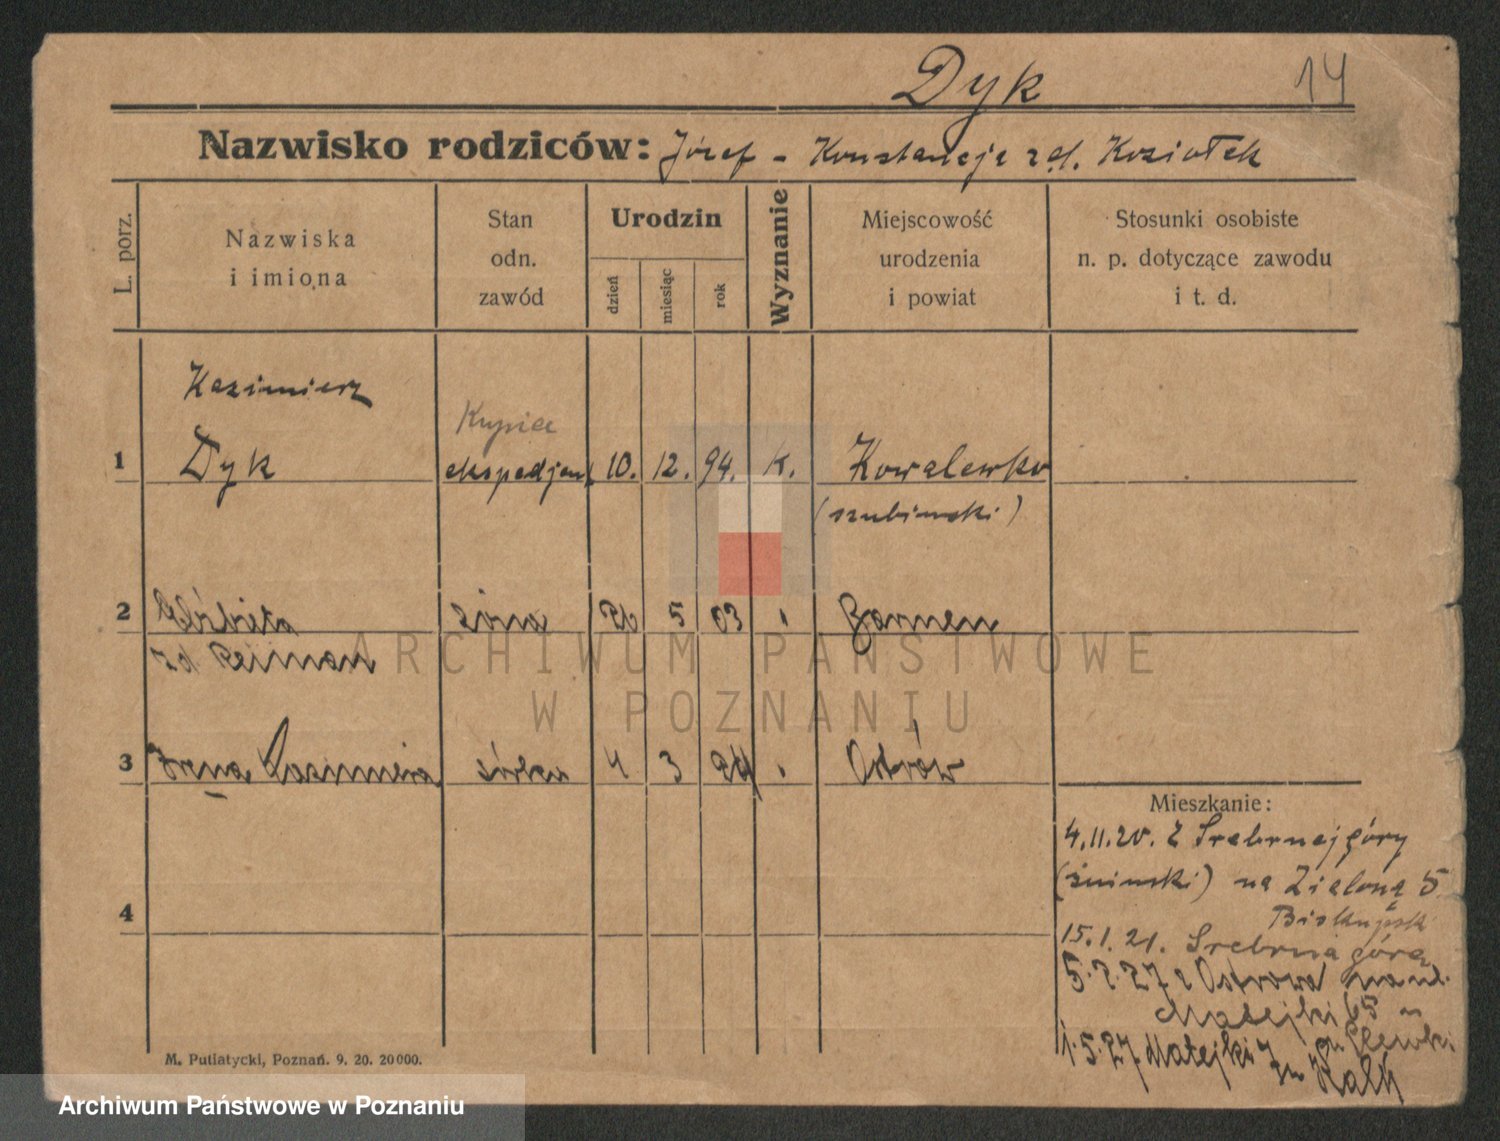 Dyk
14
Nazwisko rodziców: Józef - Konstancja zd. Koziołek
L. porz.
Nazwiska
i imiona
Stan
odn.
zawód
Urodzin
dzień
miesiąc
rok
Wyznanie
Miejscowość
urodzenia
i powiat
Stosunki osobiste
n. p. dotyczące zawodu
i t. d.
Kazimierz
Kupiec
1 Dyk ekspedjent 10. 12. 94. K. Kowalewko
(szubinski)
2 Elżbieta żona 26 5 03 Barmen
zd. Reiman
ARCHIWUM PAŃSTWOWE
W POZNANIU
3 Irena Kazimiera córka 4 3 24 Ostrów
Mieszkanie:
4.11.20. z Srebrnejgóry
(żninski) na Zieloną 5
4
Biskupski
15.1.21. Srebrna góra
5.2.27 z Ostrowa na ul.
Matejki 65
1.5.27 Matejki
M. Putiatycki, Poznań. 9. 20. 20000.
Archiwum Państwowe w Poznaniu